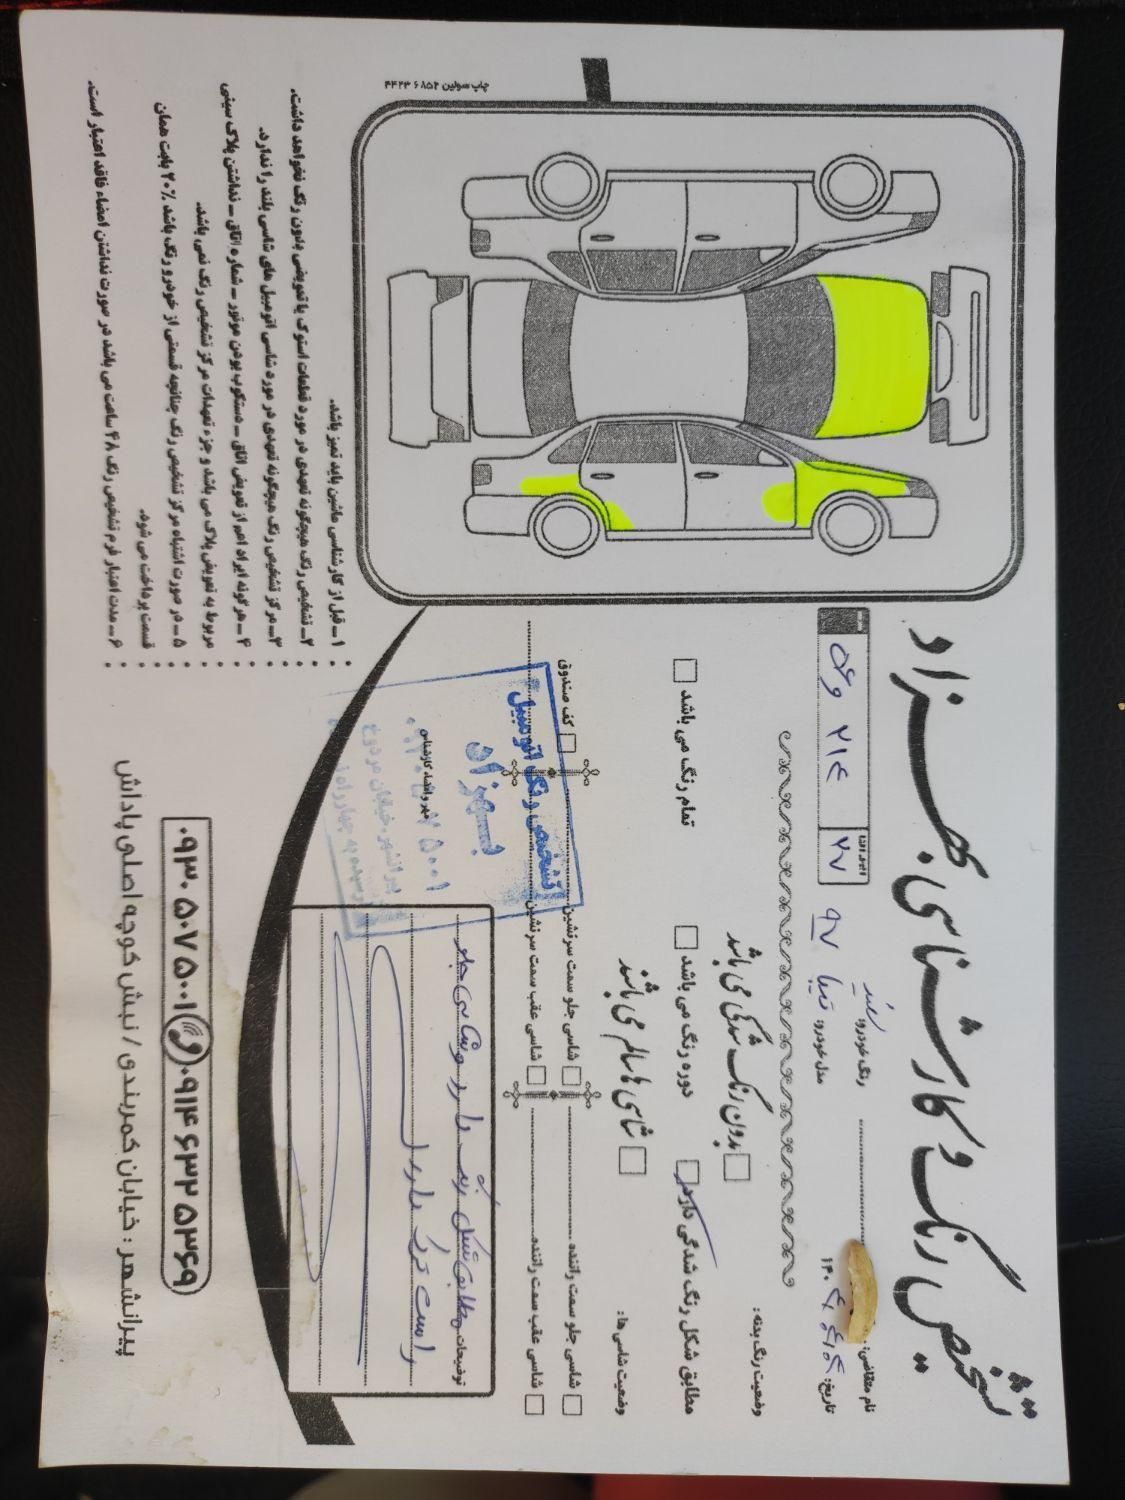 تشخیص رنگ و کارشناسی بهزاد
نام متقاضی:
رنگ خودرو: سفید
تاریخ:
مدل خودرو: تیبا ۹۷
ایران
۲۷
وضعیت رنگ بدنه:
بدون رنگ شدگی می باشد
مطابق شکل رنگ شدگی دارد
دوره رنگ می باشد
تمام رنگ می باشد
وضعیت شاسی ها:
شاسی ها سالم می باشند
شاسی جلو سمت راننده
شاسی جلو سمت سرنشین
کف صندوق
شاسی عقب سمت راننده
شاسی عقب سمت سرنشین
تشخیص رنگ اتومبیل
بهزاد
مهر و امضاء کارشناس
توضیحات: مطابق شکل رنگ دارد و شاسی جلو
راست ترک دارد
۱ـ قبل از کارشناسی ماشین باید تمیز باشد.
۲ـ تشخیص رنگ هیچگونه تعهدی در مورد قطعات استوک یا تعویضی بدون رنگ نخواهد داشت.
۳ـ مرکز تشخیص رنگ هیچگونه تعهدی در مورد شاسی اتومبیل های شاسی بلند را ندارد.
۴ـ هرگونه ایراد اعم از تعویض اتاق ـ دستکوب بودن موتور ـ شماره اتاق ـ نداشتن پلاک سینی
مربوط به تعویض پلاک می باشد و جزء تعهدات مرکز تشخیص رنگ نمی باشد.
۵ـ در صورت اشتباه مرکز تشخیص رنگ چنانچه قسمتی از خودرو رنگ باشد ۲۰٪ بابت همان
قسمت پرداخت می شود.
۶ـ مدت اعتبار فرم تشخیص رنگ ۴۸ ساعت می باشد در صورت نداشتن امضاء فاقد اعتبار است.
چاپ سولین ۴۴۲۳۶۸۵۲
۰۹۳۰ ۵۰۷ ۵۰۰۱ ۰۹۱۴ ۶۳۲ ۵۳۶۹
پیرانشهر : خیابان کمربندی / نبش کوچه اصلی پاداش